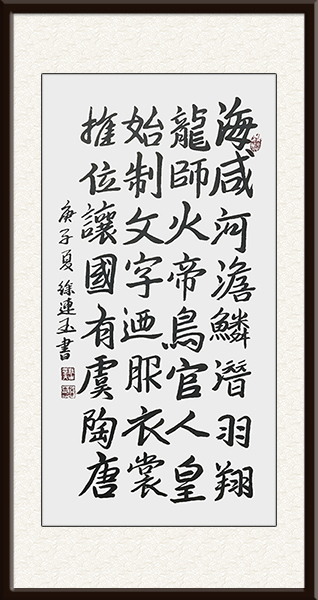 海咸河澹鱗潛羽翔
龍師火帝鳥官人皇
始制文字迺服衣裳
推位讓國有虞陶唐
庚子夏徐連玉書